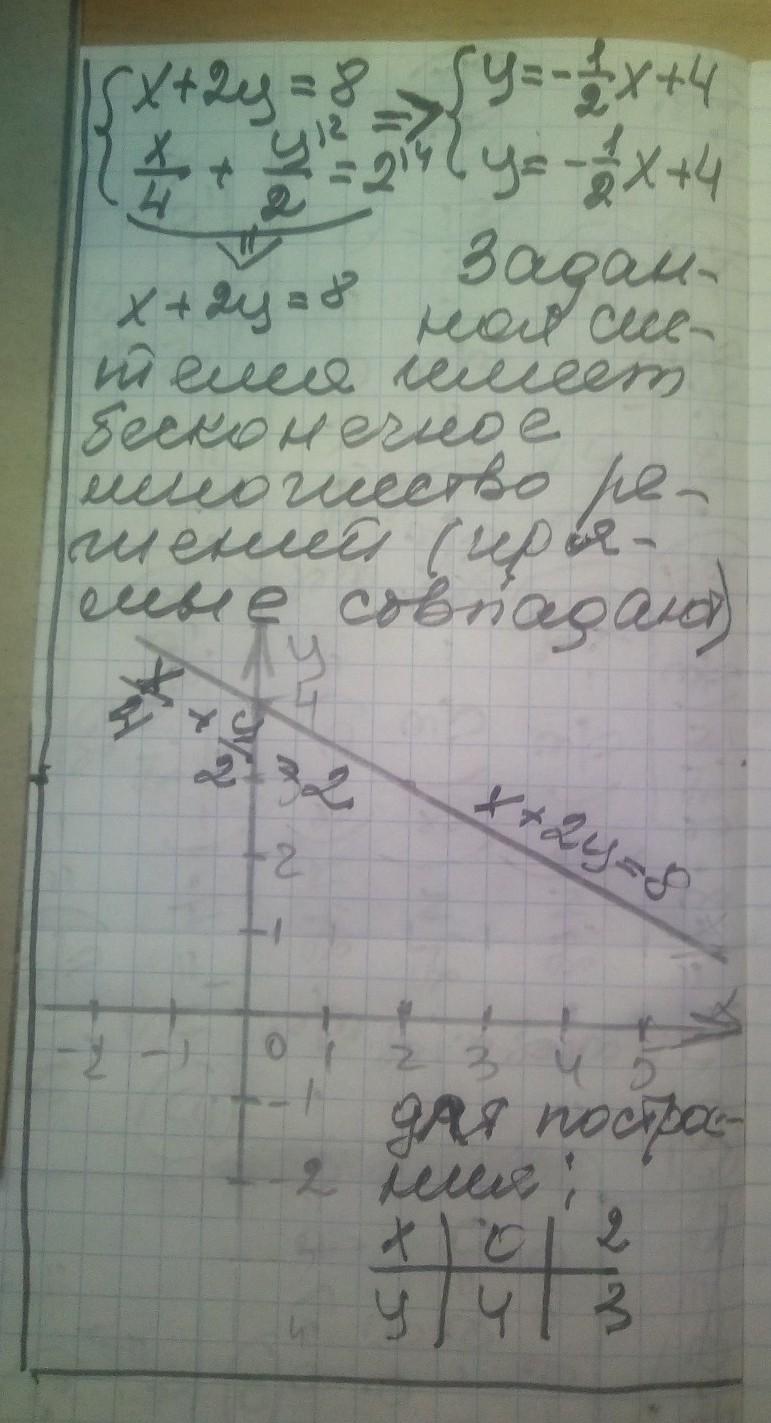 { x+2y=8 => { y=-1/2x+4
x/4 + y/2 |2 =2 |4 y=-1/2x+4
x+2y=8
Задан-
ная сис-
тема имеет
бесконечное
множество ре-
шений (пря-
мые совпадают)
y
4
x/4 + y/2 = 2
3
x+2y=8
2
1
x
-2 -1 0 1 2 3 4 5
-1
-2
для построе-
ния:
x | 0 | 2
y | 4 | 3